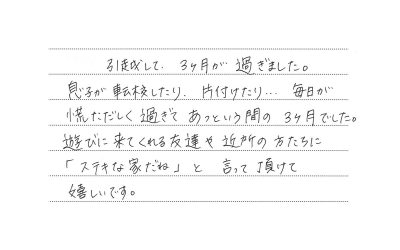 引越して、3ヶ月が過ぎました。
息子が転校したり、片付けたり… 毎日が
慌ただしく過ぎて あっという間の3ヶ月でした。
遊びに来てくれる友達や近所の方たちに
「ステキな家だね」と 言って頂けて
嬉しいです。